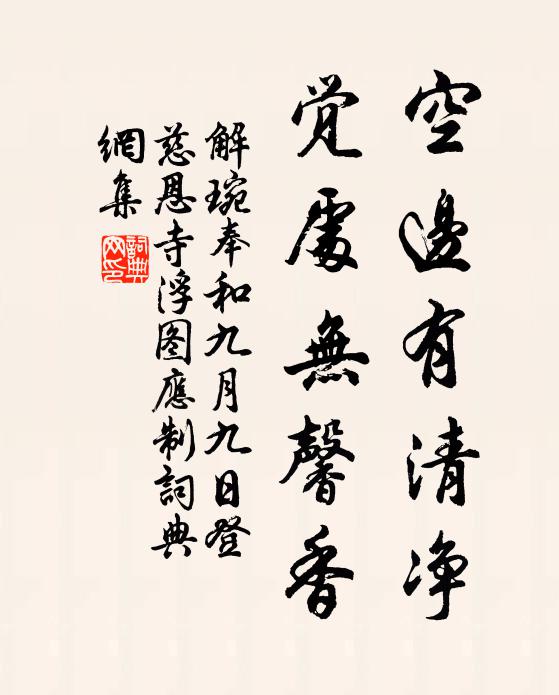 空邊有清净
觉處無馨香
解琬奉和九月九日登
慈恩寺浮图應制詞典
網集
詞典网印